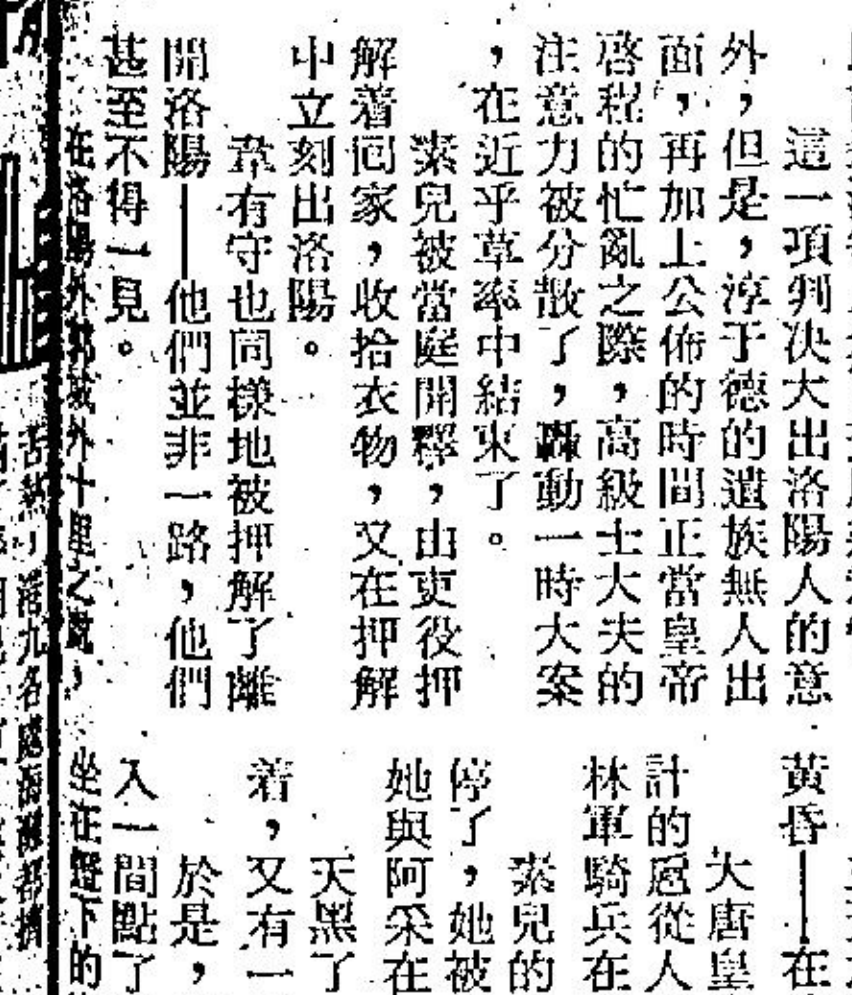 這一項判決大出洛陽人的意
外，但是，淳于德的遺族無人出
面，再加上公佈的時間正當皇帝
啓程的忙亂之際，高級士大夫的
注意力被分散了，轟動一時大案
，在近乎草率中結束了。
素兒被當庭開釋，由吏役押
解着回家，收拾衣物，又在押解
中立刻出洛陽。
韋有守也同樣地被押解了離
開洛陽——他們並非一路，他們
甚至不得一見。
在洛陽外郭城外十里之處，
黃昏——在
大唐皇
計的扈從人
林軍騎兵在
素兒的
停了，她被
她與阿采在
天黑了
着，又有一
於是，
入一間點了
坐在燈下的